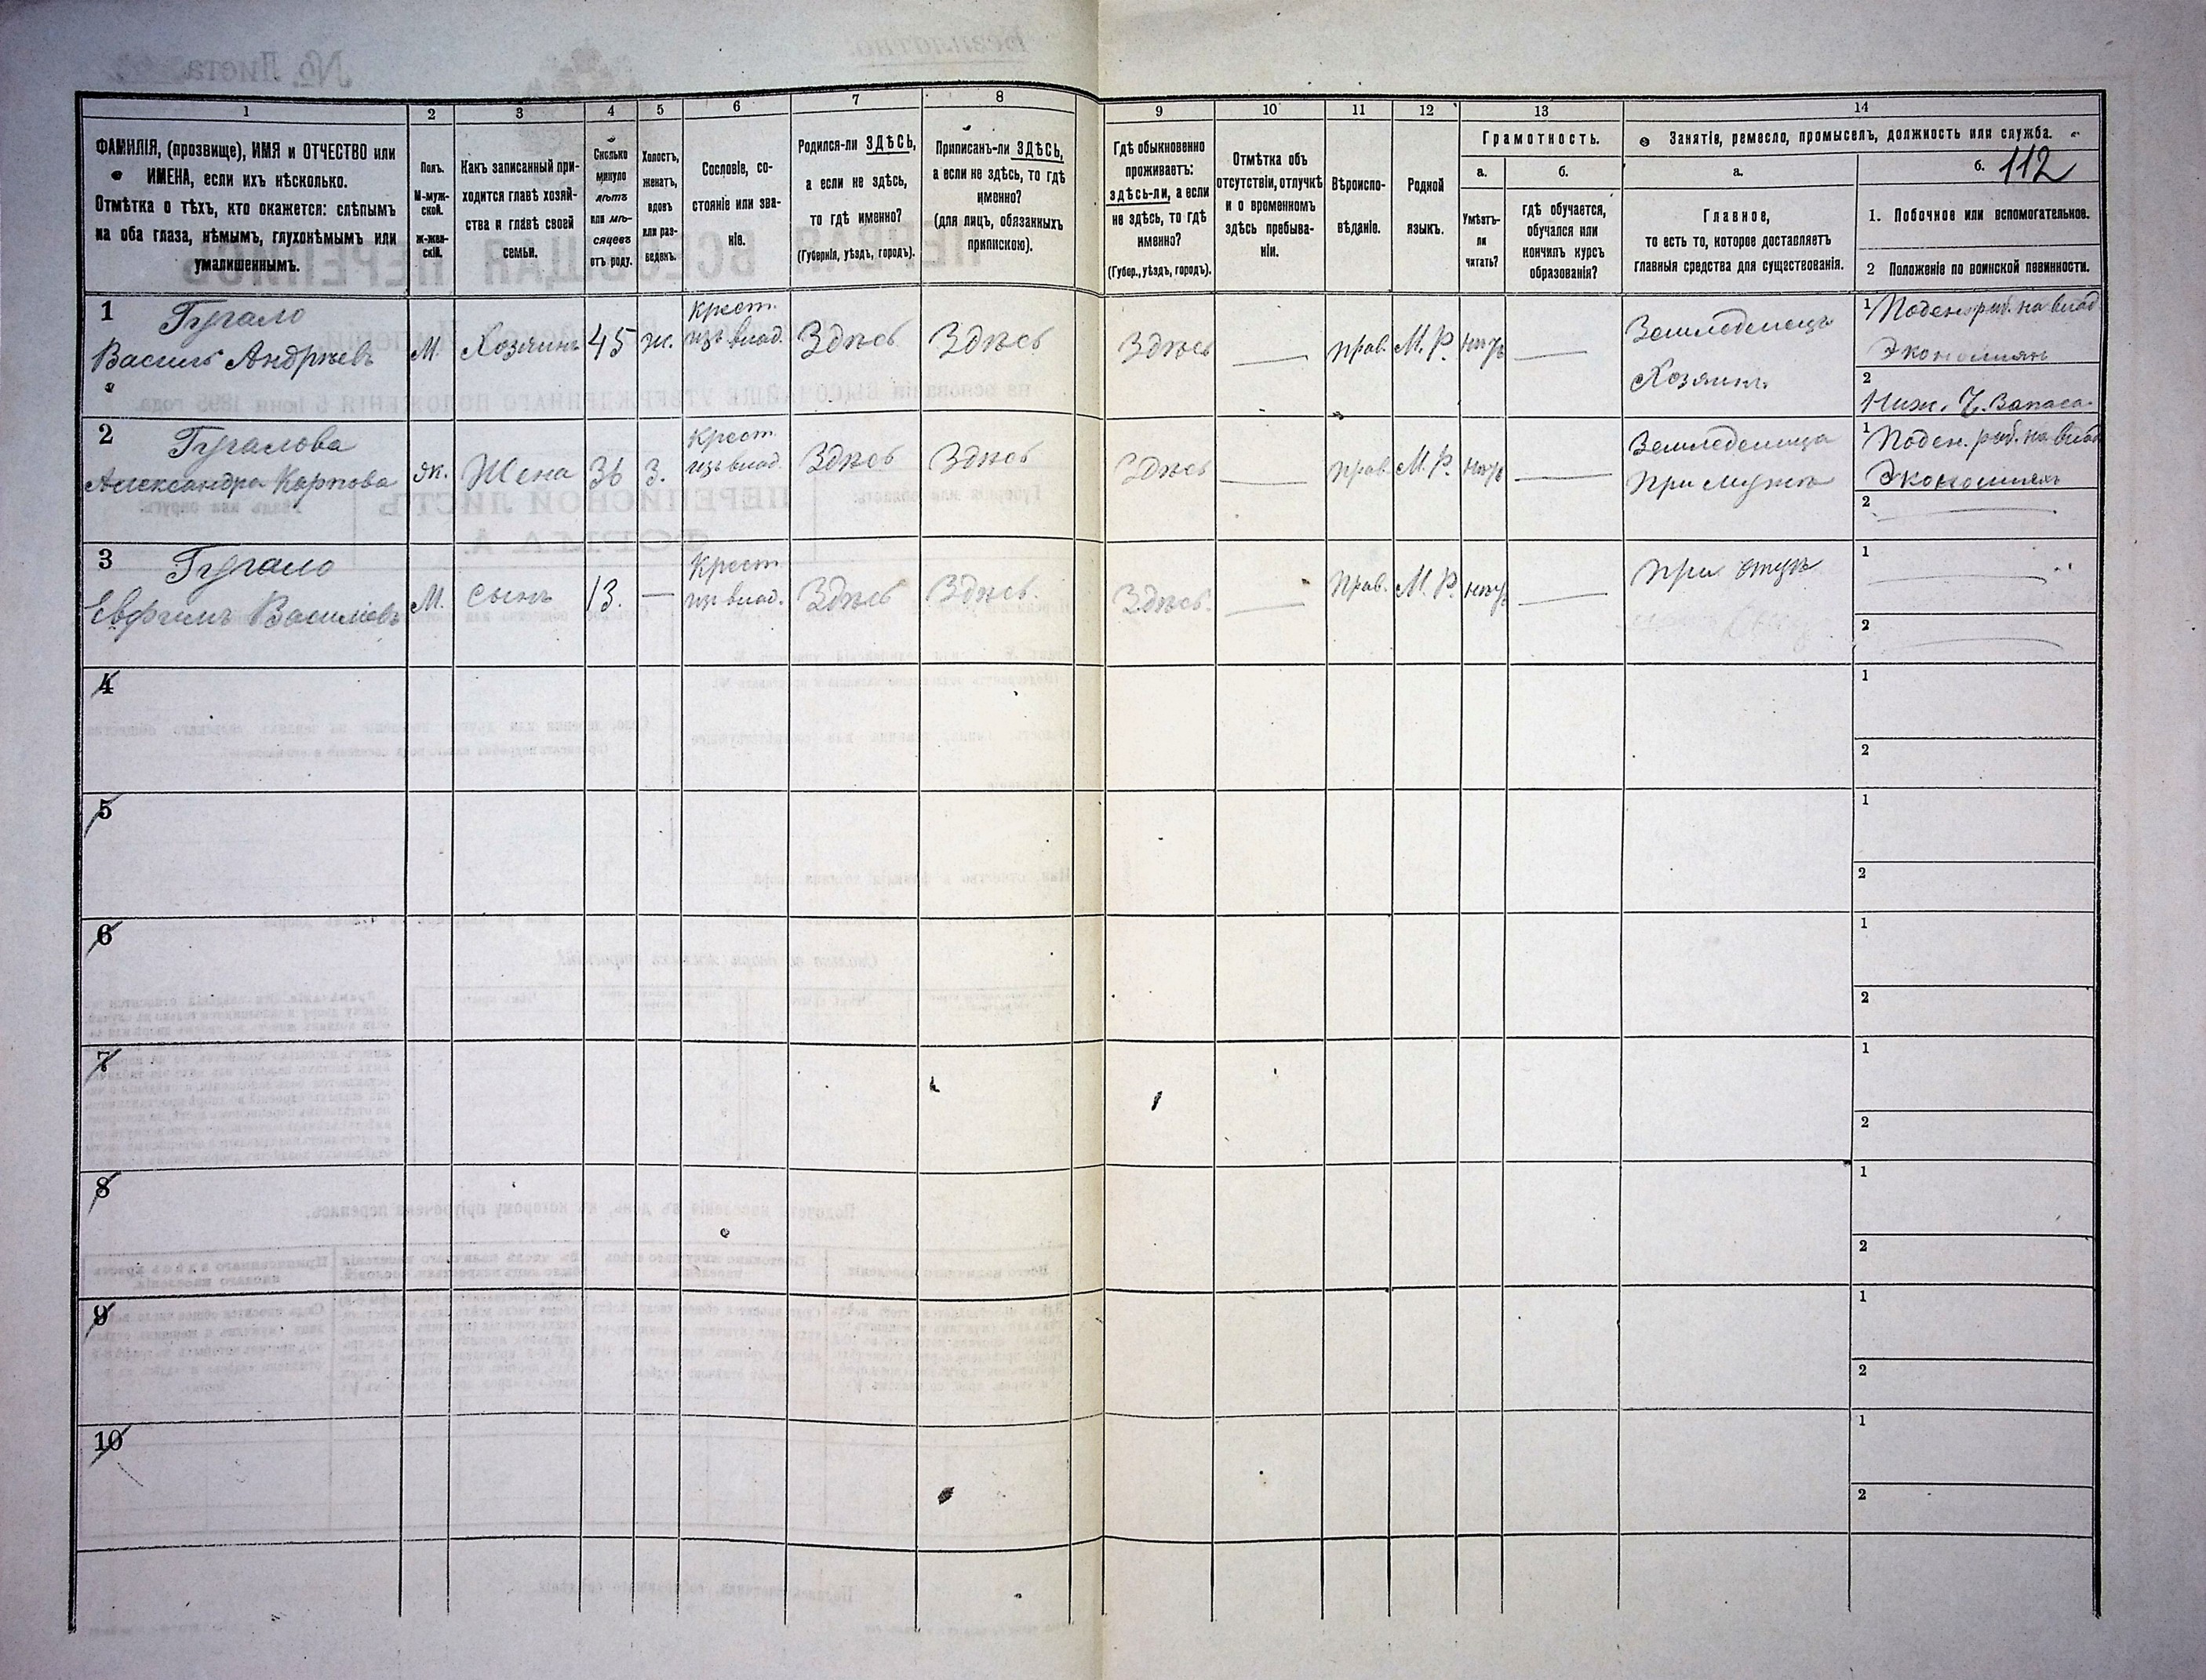 1
ФАМИЛІЯ, (прозвище), ИМЯ и ОТЧЕСТВО или
ИМЕНА, если ихъ нѣсколько.
Отмѣтка о тѣхъ, кто окажется: слѣпымъ
на оба глаза, нѣмымъ, глухонѣмымъ или
умалишеннымъ.
2
Полъ.
М-муж-
ской.
ж-жен-
скій.
3
Какъ записанный при-
ходится главѣ хозяй-
ства и главѣ своей
семьи.
4
Сколько
минуло
лѣтъ
или мѣ-
сяцевъ
отъ роду.
5
Холостъ,
женатъ,
вдовъ
или раз-
веденъ.
6
Сословіе, со-
стояніе или зва-
ніе.
7
Родился-ли ЗДѢСЬ,
а если не здѣсь,
то гдѣ именно?
(Губернія, уѣздъ, городъ).
8
Приписанъ-ли ЗДѢСЬ,
а если не здѣсь, то гдѣ
именно?
(для лицъ, обязанныхъ
припискою).
9
Гдѣ обыкновенно
проживаетъ:
здѣсь-ли, а если
не здѣсь, то гдѣ
именно?
(Губер., уѣздъ, городъ).
10
Отмѣтка объ
отсутствіи, отлучкѣ
и о временномъ
здѣсь пребыва-
ніи.
11
Вѣроиспо-
вѣданіе.
12
Родной
языкъ.
13
Грамотность.
а.
Умѣетъ-
ли
читать?
б.
гдѣ обучается,
обучался или
кончилъ курсъ
образованія?
14
Занятія, ремесло, промыселъ, должность или служба.
а.
Главное,
то есть то, которое доставляетъ
главныя средства для существованія.
б. 112
1. Побочное или вспомогательное.
2 Положеніе по воинской повинности.
1
Гугало
Василь Андрѣевъ
М.
Хозяинъ
45
ж.
Крест.
изъ влад.
Здѣсь
Здѣсь
Здѣсь
прав.
М. Р.
нѣтъ
Земледелецъ
Хозяинъ
1 Поден. раб. на влад.
Экономіяхъ
2
Ниж. Ч. Запаса
2
Гугалова
Александра Карпова
ж.
Жена
36
З.
Крест.
изъ влад.
Здѣсь
Здѣсь
Здѣсь
прав.
М. Р.
нѣтъ
Земледелица
при мужѣ
1 Поден. раб. на влад.
Экономіяхъ
2
3
Гугало
Евфимъ Васильевъ
М.
сынъ
13.
Крест
изъ влад.
Здѣсь
Здѣсь.
Здѣсь.
Прав.
М. Р.
нѣтъ
при отцѣ
1
2
4
1
2
5
1
2
6
1
2
7
1
2
8
1
2
9
1
2
10
1
2